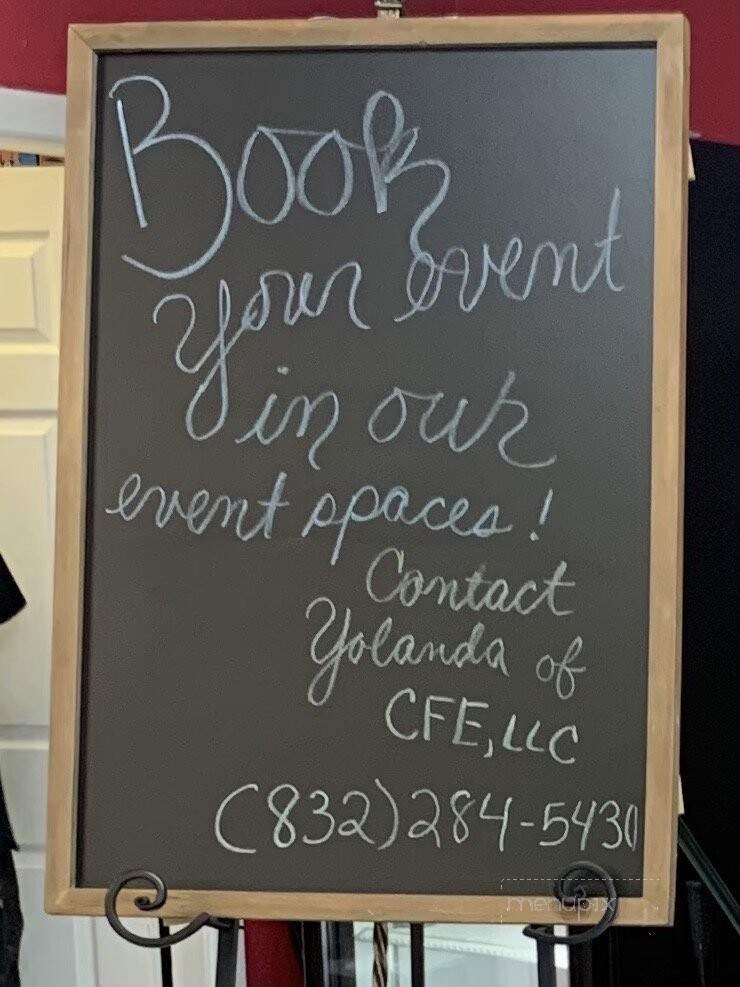 Book
your event
in our
event spaces!
Contact
Yolanda of
CFE, LLC
(832)284-5430
menupix